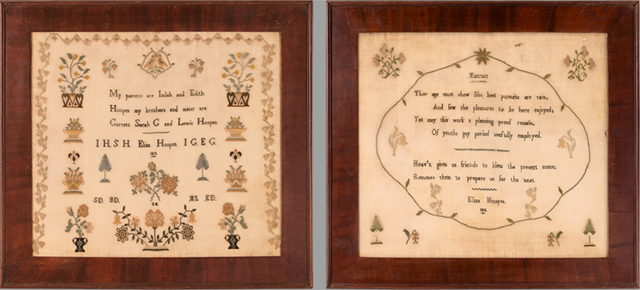 My parents are Isaiah and Edith
Hooper my brothers and sister are
Garrett Sarah G and Lewis Hooper
I H. S H Eliza Hooper I G. E G.
SD. BD. HS. ED.
Extract
Tho' age must show life's best pursuits are vain,
And few the pleasures to be here enjoyed;
Yet may this work a pleasing proof remain,
Of youths gay period usefully employed.
Heav'n gives us friends to bless the present scene;
Resumes them to prepare us for the next.
Eliza Hooper